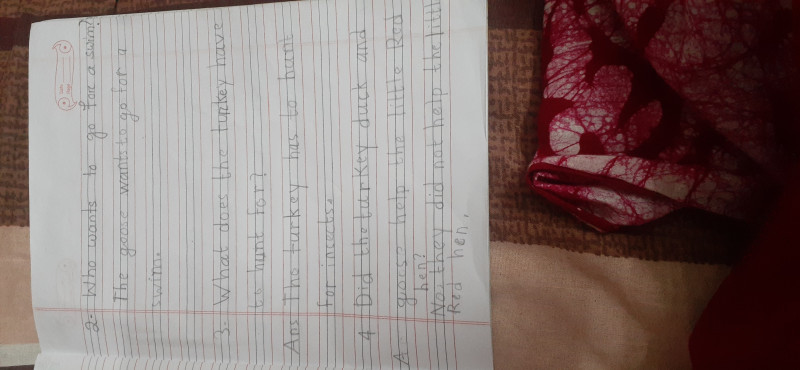 2- Who wants to go for a swim?
The goose wants to go for a
swim.
3. What does the turkey have
to hunt for?
Ans The turkey has to hunt
for incebs.
4 Did the turkey duck and
goose help the little Red
hen?
A- No, they did not help the little
Red hen.